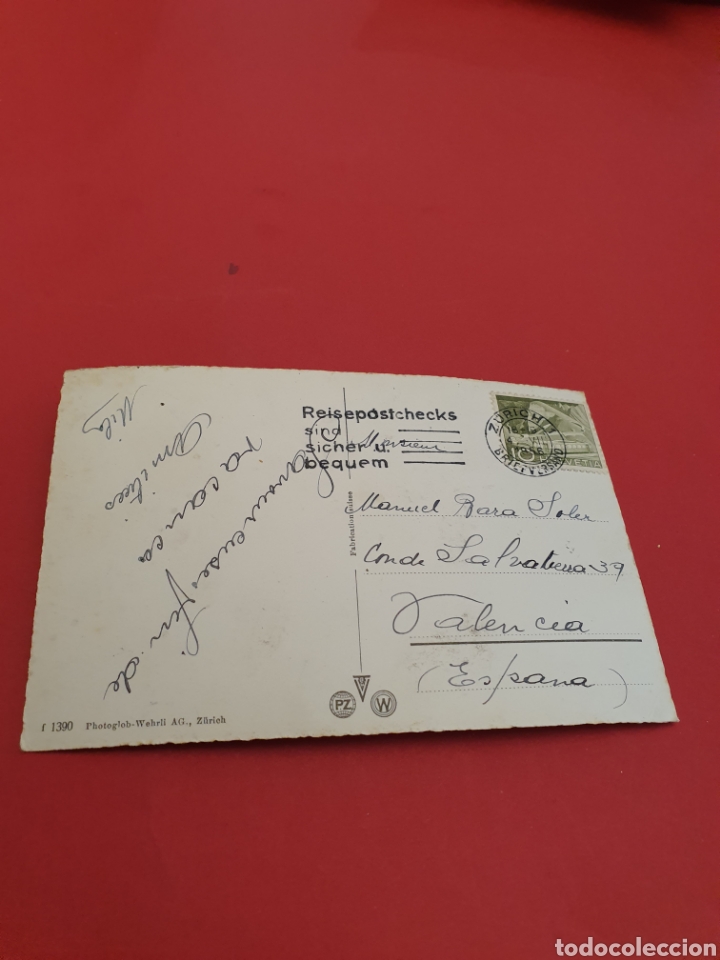 Savoureuse fin de
vacances
Amitiés
Reisepostchecks
sind
sicher u.
bequem
ZÜRICH
BRIEFVERSAND
HELVETIA
Monsieur
Manuel Bara Soler
Conde Salvatierra 39
Valencia
(España)
Fabrication Suisse
PZ
W
f 1390 Photoglob-Wehrli AG., Zürich
todocoleccion